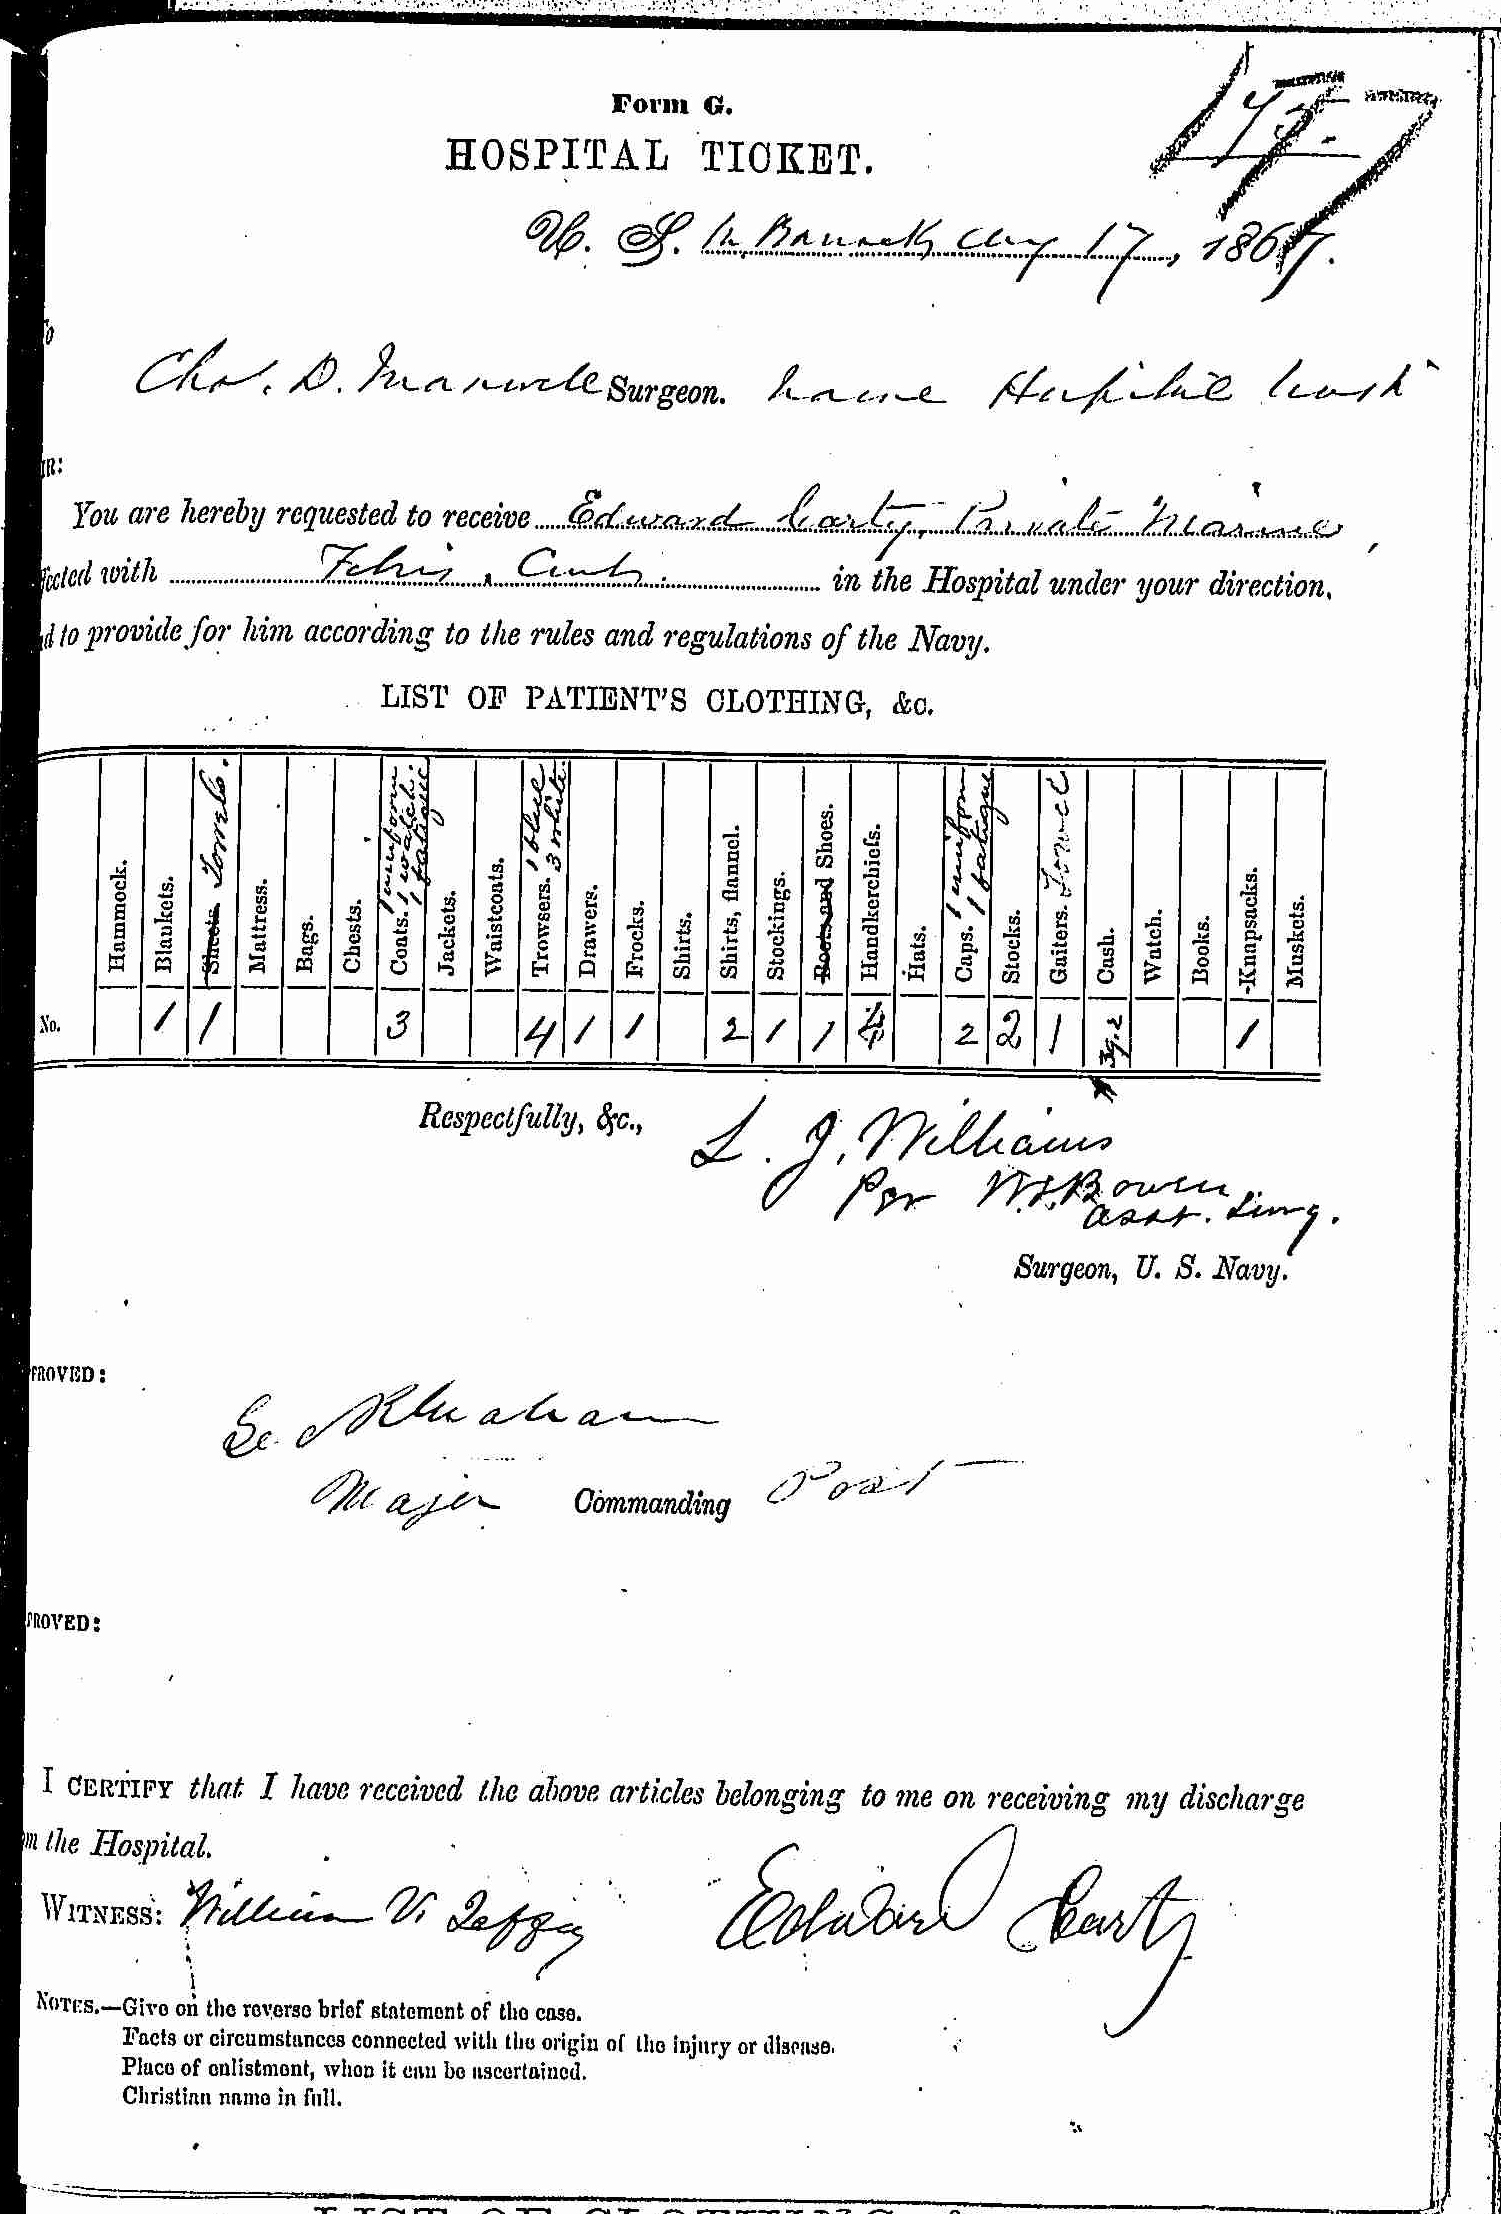 Form G.
HOSPITAL TICKET.
U. S. M. Barracks Aug 17, 1867.
To
Chas. D. Maxwell Surgeon. Naval Hospital Wash
IR:
You are hereby requested to receive Edward Carty, Private Marine,
fected with Febris, in the Hospital under your direction,
d to provide for him according to the rules and regulations of the Navy.
LIST OF PATIENT'S CLOTHING, &c.
Hammock.
Blankets.
Sheets Towels.
Mattress.
Bags.
Chests.
Coats. 1 uniform 1 watch. 1 fatigue
Jackets.
Waistcoats.
Trowsers. 1 blue 3 white.
Drawers.
Frocks.
Shirts.
Shirts, flannel.
Stockings.
Boots and Shoes.
Handkerchiefs.
Hats.
Caps. 1 uniform 1 fatigue
Stocks.
Gaiters. Towel
Cash.
Watch.
Books.
Knapsacks.
Muskets.
No. 1 1 3 4 1 1 2 1 1 4 2 2 1 1
Respectfully, &c., L. J. Williams
Per Bowen
Asst. Surg.
Surgeon, U. S. Navy.
PROVED:
Graham
Major Commanding Post
PROVED:
I CERTIFY that I have received the above articles belonging to me on receiving my discharge
m the Hospital.
WITNESS: William V. Edward Carty
NOTES.—Give on the reverse brief statement of the case.
Facts or circumstances connected with the origin of the injury or disease.
Place of enlistment, when it can be ascertained.
Christian name in full.